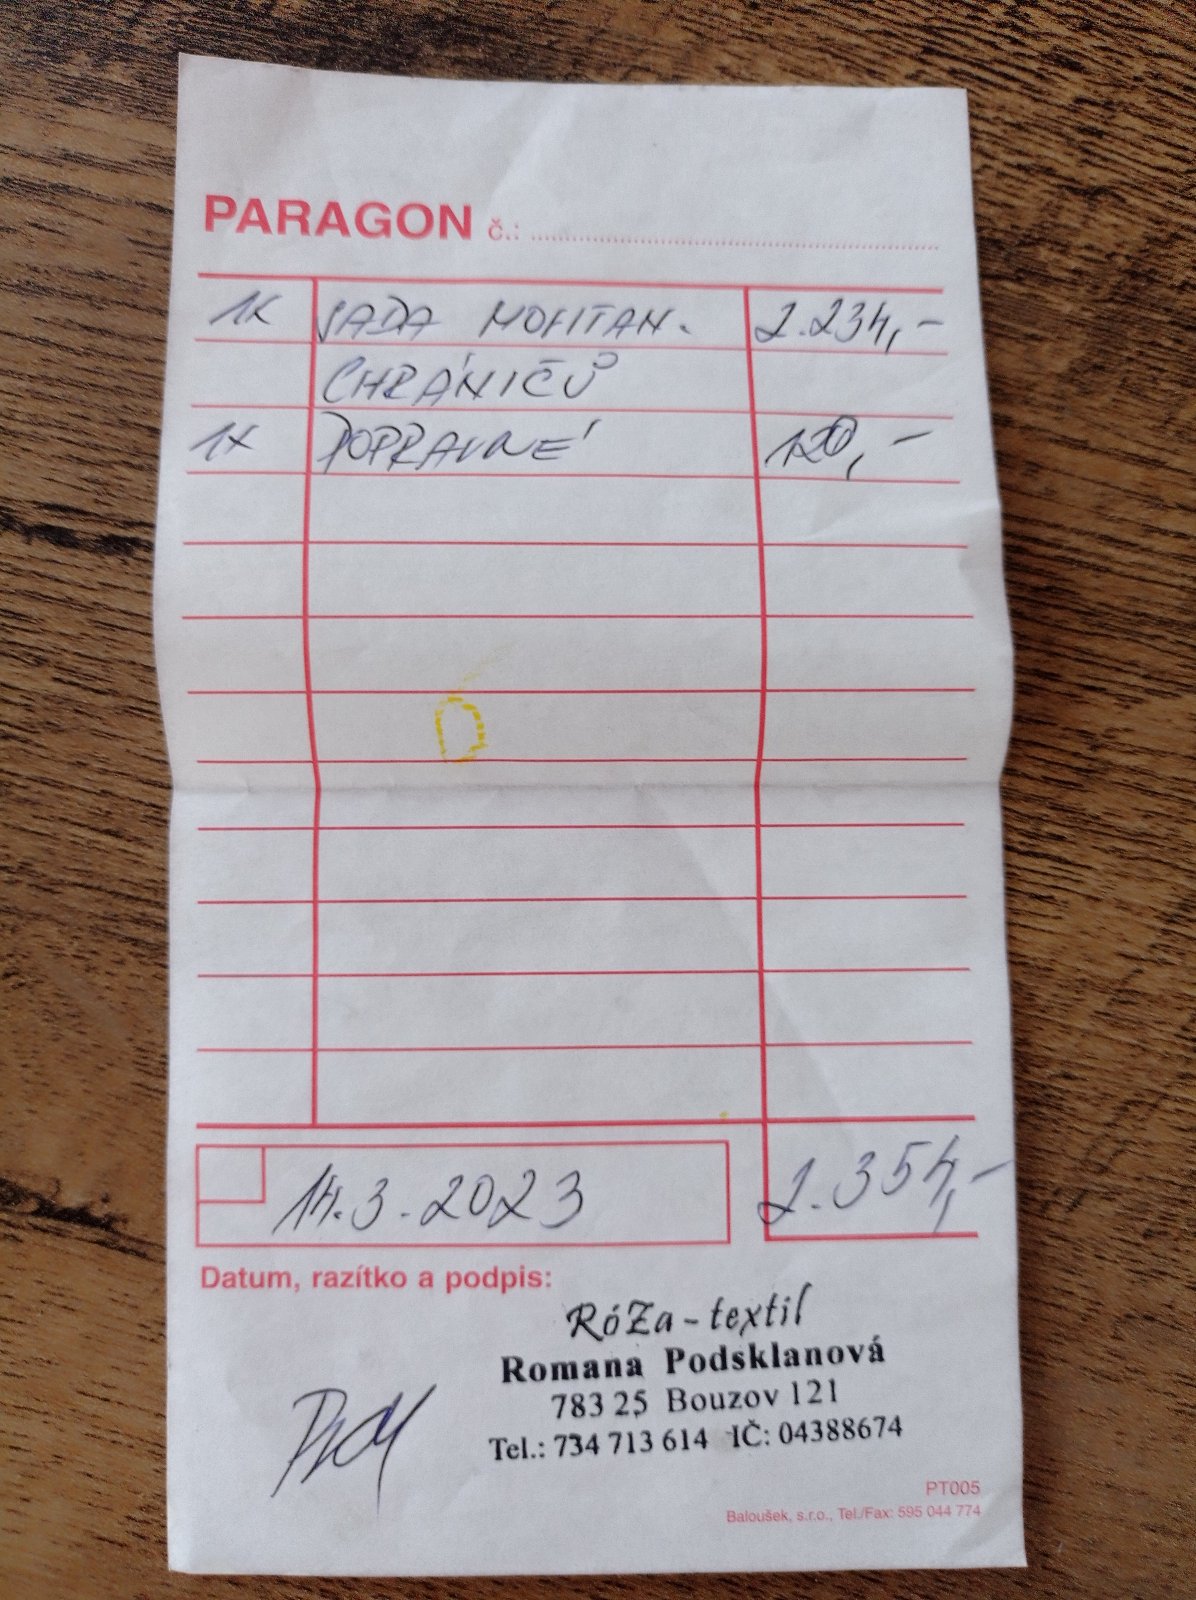 PARAGON č.:
1x SADA MOLITAN. 2.234,-
CHRÁNIČŮ
1x POPRAVNÉ 120,-
14.3.2023 2.354,-
Datum, razítko a podpis:
RóZa-textil
Romana Podsklanová
783 25 Bouzov 121
Tel.: 734 713 614 IČ: 04388674
PT005
Baloušek, s.r.o., Tel./Fax: 595 044 774